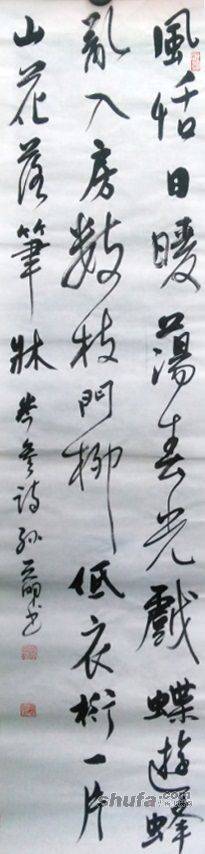 風恬日暖蕩春光戲蝶遊蜂
亂入房數枝門柳低衣桁一片
山花落筆牀 岑參詩 孫正明書
shufa.com